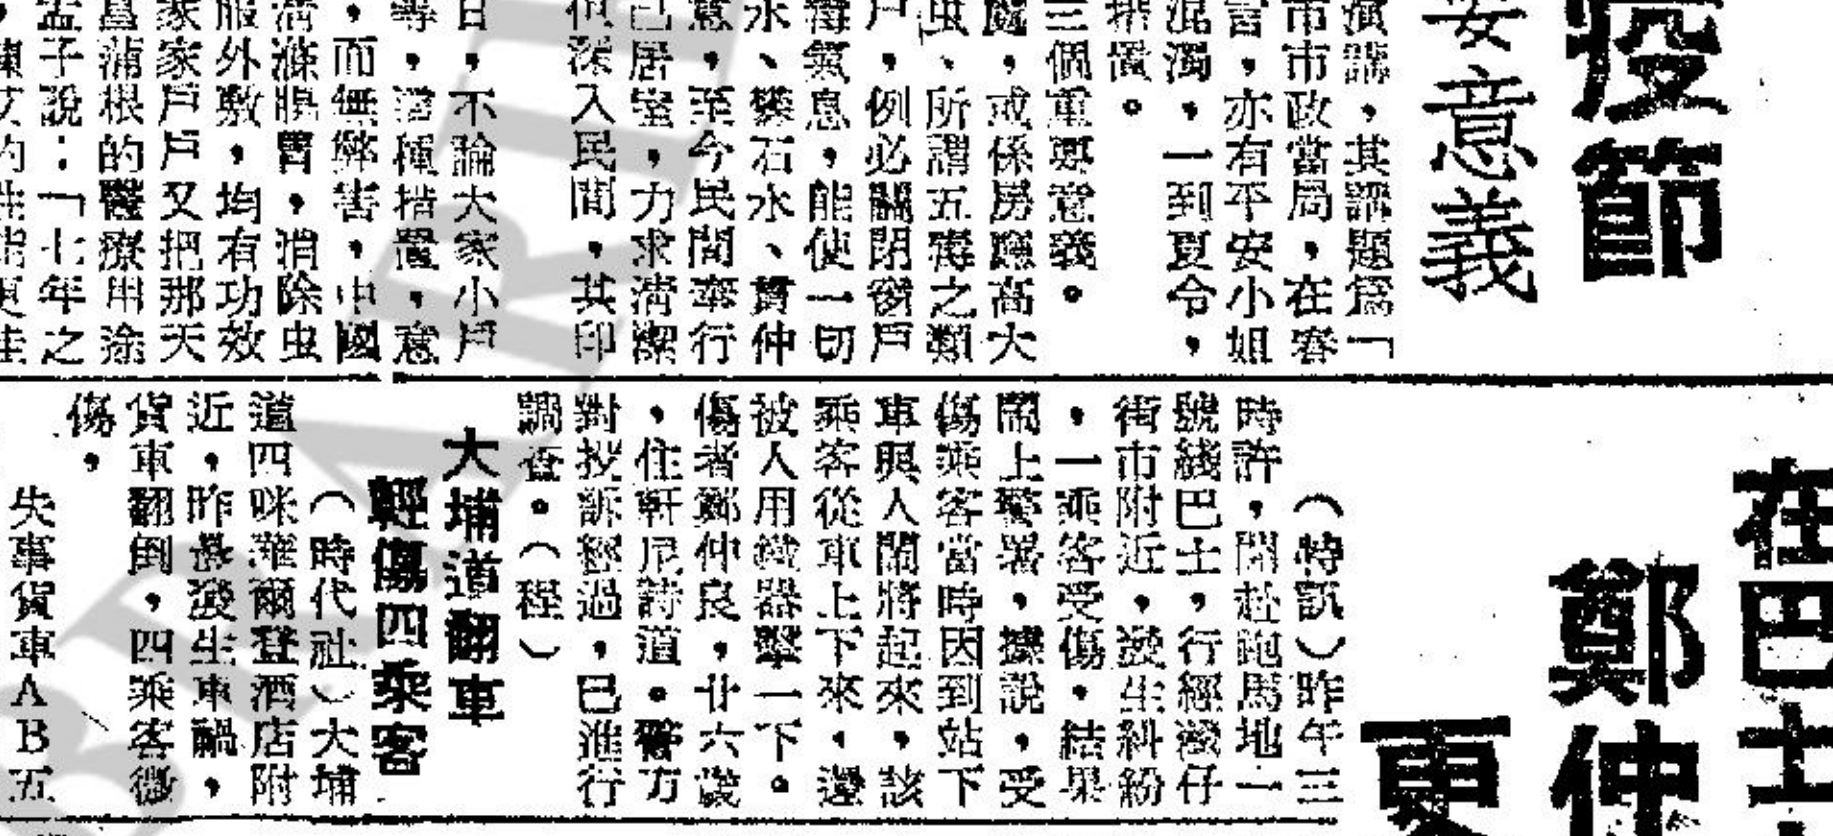 疫節
安意義
演講,其講題爲「
市市政當局,在春
言,亦有平安小姐
混濁,一到夏令,
措置。
三個重要意義。
處,或係房廳高大
虫、所謂五毒之類
戶,例必關閉後戶
毒氣息,能使一切
水、礬石水、貫仲
意,至今民間奉行
已居室,力求淸潔
俱深入民間,其印
日,不論大家小戶
等,這種措置,意
,而無弊害,中國
淸滌腸胃,消除虫
服外敷,均有功效
家家戶戶又把那天
菖蒲根的醫療用途
孟子說:「七年之
在巴士
鄭仲
更
(特訊)昨午三
時許,開赴跑馬地一
號綫巴士,行經灣仔
街市附近,發生糾紛
,一乘客受傷,結果
鬧上警署,據說,受
傷乘客當時因到站下
車與人鬧將起來,該
乘客從車上下來,還
被人用鐵器擊一下。
傷者鄭仲良,廿六歲
,住軒尼詩道。警方
對投訴經過,已進行
調查。(程)
大埔道翻車
輕傷四乘客
(時代社)大埔
道四咪華爾登酒店附
近,昨晨發生車禍,
貨車翻倒,四乘客微
傷,
失事貨車AB五